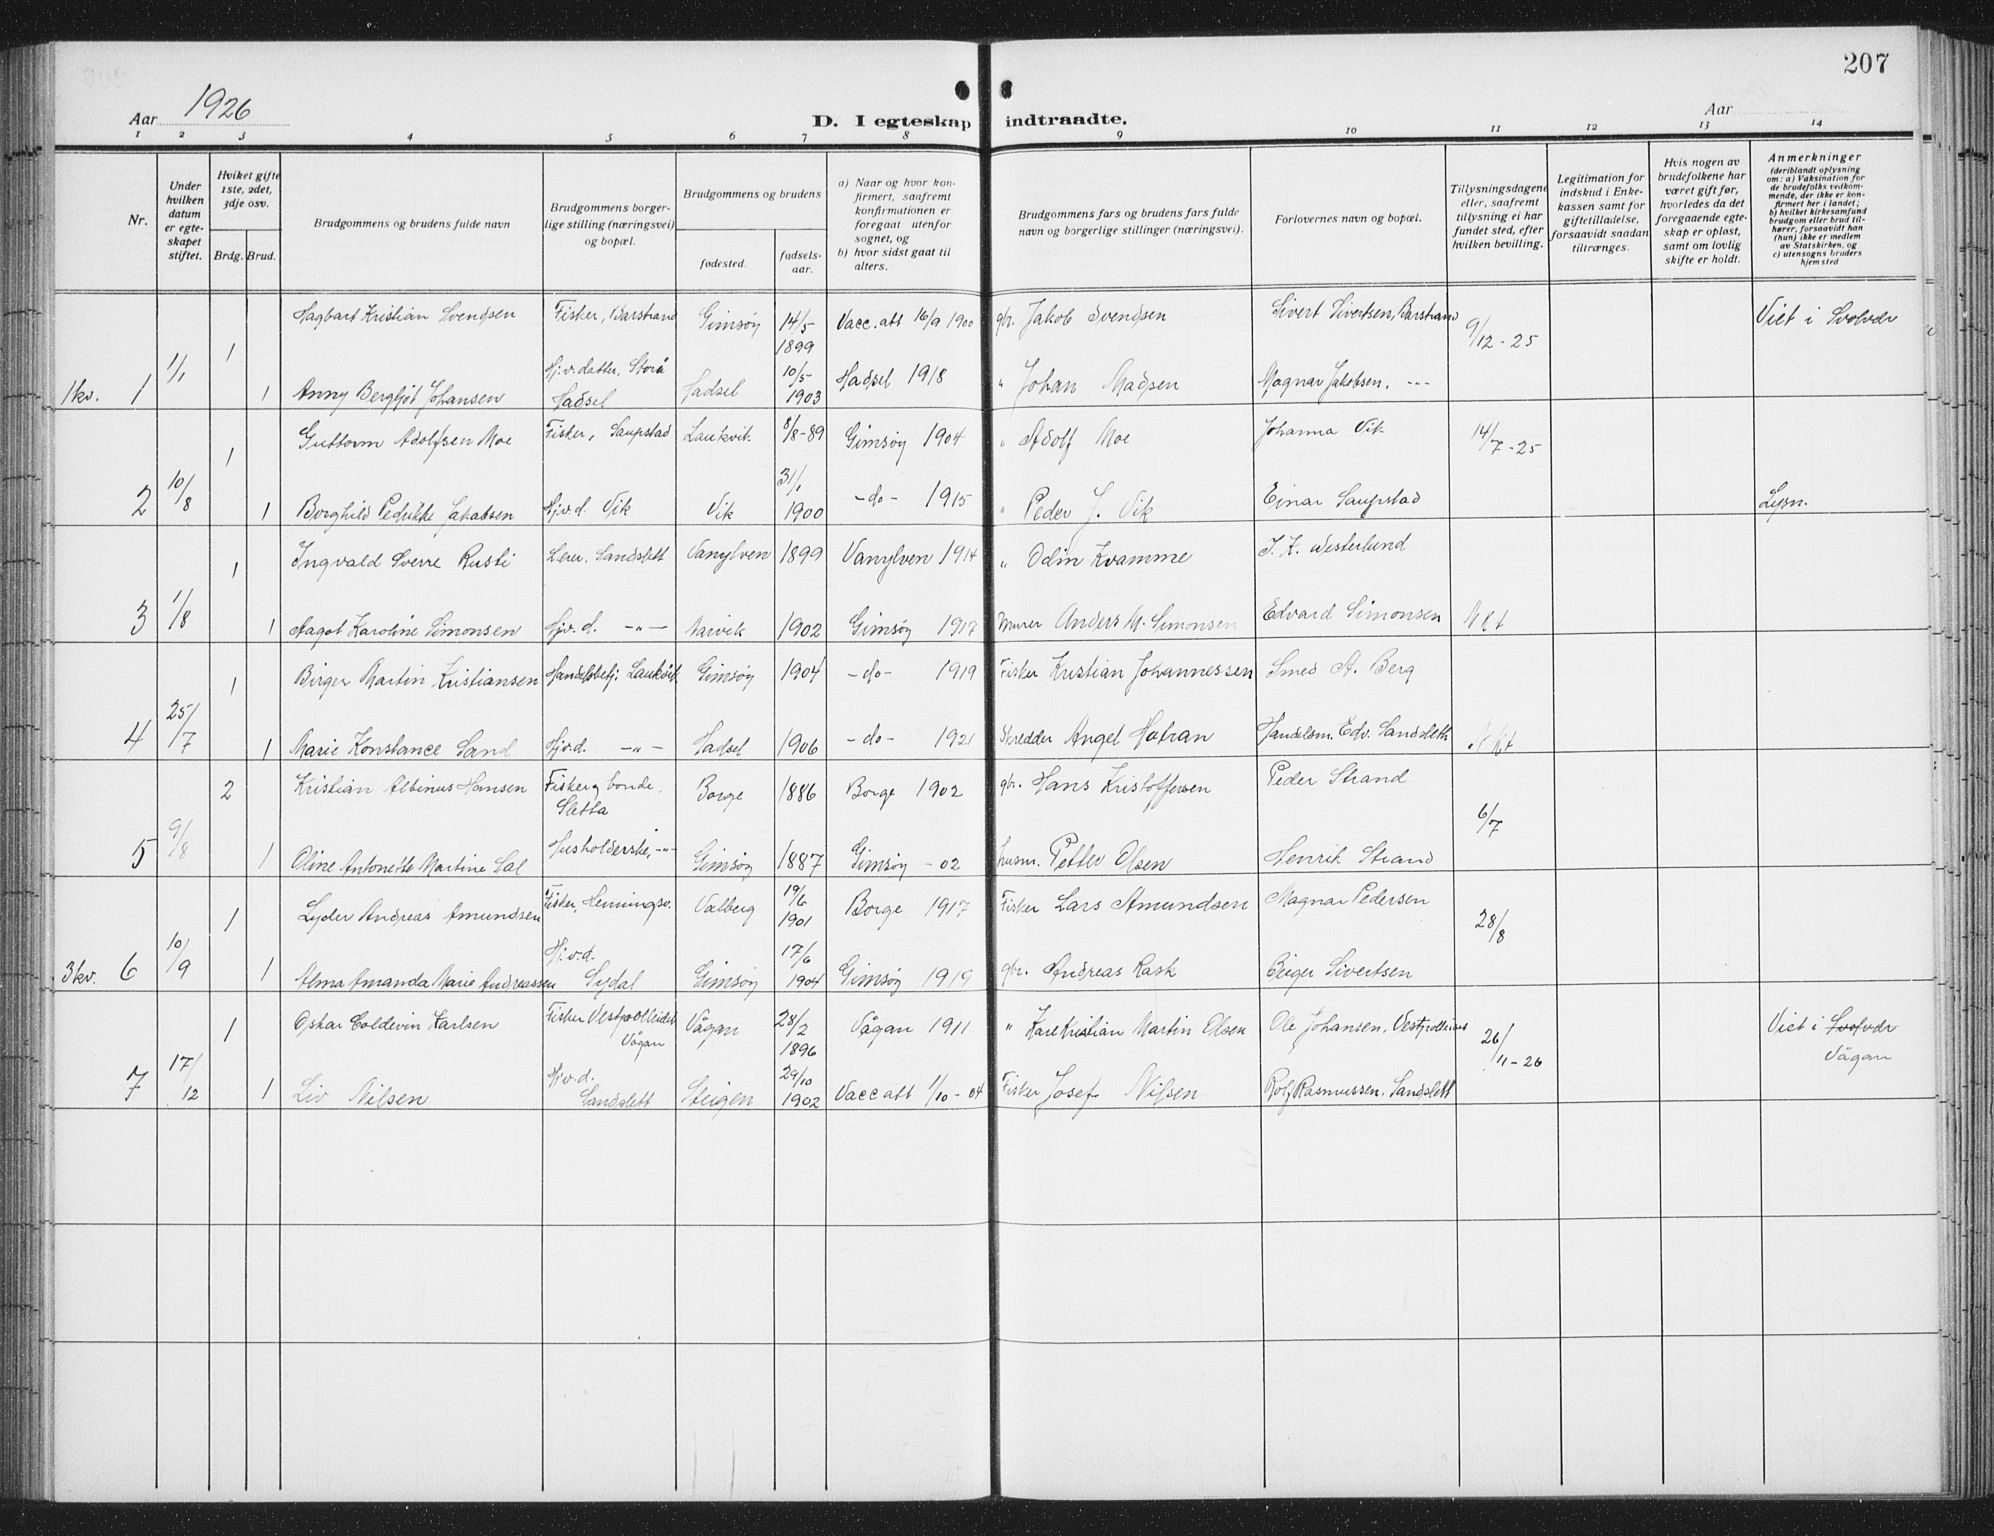 207
Aar 1926
D. I egteskap indtraadte.
Aar
1 2 3 4 5 6 7 8 9 10 11 12 13 14
Nr.
Under hvilken datum er egteskapet stiftet.
Hviket gifte 1ste, 2det, 3dje osv.
Brdg. Brud.
Brudgommens og brudens fulde navn
Brudgommens borgerlige stilling (næringsvei) og bopæl.
Brudgommens og brudens
fødested.
fødselsaar.
a) Naar og hvor konfirmert, saafremt konfirmationen er foregaat utenfor sognet, og
b) hvor sidst gaat til alters.
Brudgommens fars og brudens fars fulde navn og borgerlige stillinger (næringsvei).
Forlovernes navn og bopæl.
Tillysningsdagene eller, saafremt tillysning ei har fundet sted, efter hvilken bevilling.
Legitimation for indskud i Enkekassen samt for giftetilladelse, forsaavidt saadan tiltrænges.
Hvis nogen av brudefolkene har været gift før, hvorledes da det foregaaende egteskap er opløst, samt om lovlig skifte er holdt.
Anmerkninger (deriblandt oplysning om: a) Vaksination for de brudefolks vedkommende, der ikke er konfirmert her i landet; b) hvilket kirkesamfund brudgom eller brud tilhører, forsaavidt han (hun) ikke er medlem av Statskirken, og c) utensogns bruders hjemsted
1 Hagbart Kristian Svendsen Fisker, Barstrand Gimsøy 14/5 1899 Vacc. att 16/9 1900 gbr. Jakob Svendsen Sivert Sivertsen, Barstrand 9/12-25 Viet i Svolvær
1kv. 1 1/1 1 Anny Bergljot Johansen Hj.v.datter, Storå Hadsel Hadsel 10/5 1903 Hadsel 1918 " Johan Madsen Magnar Jakobsen. -"-
1 Guttorm Adolfsen Moe Fisker, Saupstad Laukvik 8/8-89 Gimsøy 1904 " Adolf Moe Johanna Vik 14/7-25
2 10/8 1 Borghild Pedrikke Jakobsen Hjv.d. Vik Vik 31/1 1900 -do- 1915 " Peder J. Vik Einar Saupstad Lysn.
1 Ingvald Sverre Rusti Lærer. Sandslett Vanylven 1899 Vanylven 1914 " Odin Kvamme J. K. Westerlund
3 1/8 1 Aagot Karoline Simonsen Hjv.d. -"- Narvik 1902 Gimsøy 1917 Murer Anders M. Simonsen Edvard Simonsen
1 Birger Martin Kristiansen Handelsbetj. Laukvik Gimsøy 1904 -do- 1919 Fisker Kristian Johannessen Smed A. Berg
4 25/7 1 Marie Konstance Sand Hjv.d. -"- Hadsel 1906 -do- 1921 Skredder Angel Hofran Handelsm. Edv. Sandsleth
2 Kristian Albinus Hansen Fisker g bonde, Sletta Borge 1886 Borge 1902 gbr. Hans Kristoffersen Peder Strand 6/7
5 9/8 1 Oline Antonette Martine Sal Husholderske, -"- Gimsøy 1887 Gimsøy -02 husm. Petter Olsen Henrik Strand
1 Lyder Andreas Amundsen Fisker, Henningsv. Valberg 19/6 1901 Borge 1917 Fisker Lars Amundsen Magnar Pedersen 28/8
3kv. 6 10/9 1 Alma Amanda Marie Andreassen Hj.v.d. Sydal Gimsøy 17/6 1904 Gimsøy 1919 gbr. Andreas Rask Birger Sivertsen
1 Oskar Coldevin Karlsen Fisker Vestpolleidet Vågan Vågan 28/2 1896 Vågan 1911 " Kare Kristian Martin Olsen Ole Johansen, Vestpolleidet 26/11-26 Viet i Svolvær Vågan
7 17/12 1 Liv Nilsen Hjv.d. Sandslett Steigen 29/10 1902 Vacc att 1/10-04 Fisker Josef Nilsen Rolf Rasmussen. Sandslett